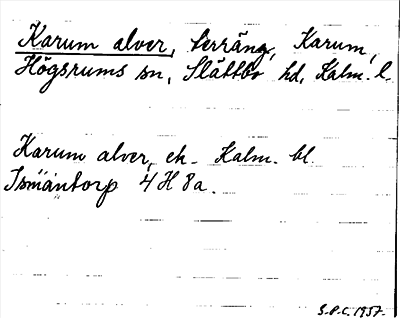 Karum alver, terräng, Karum,
Högsrums sn, Slättbo hd, Kalm. l.
Karum alver, ek. Kalm. bl.
Ismäntorp 4 H 8a.
S.P.C. 1957.